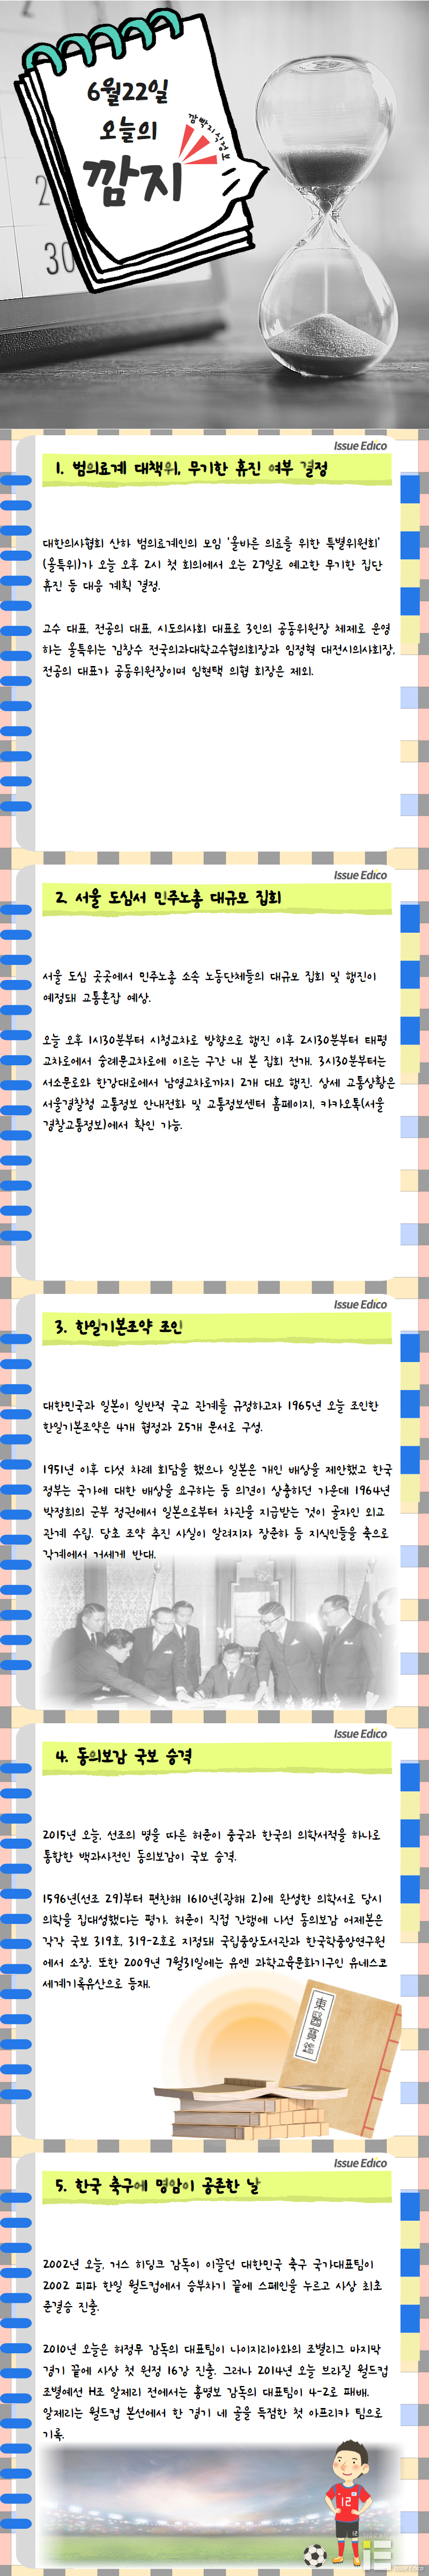 6월22일
오늘의
깜지
깜빡지식정보
2
30
Issue Edico
1. 범의료계 대책위, 무기한 휴진 여부 결정
대한의사협회 산하 범의료계인의 모임 '올바른 의료를 위한 특별위원회'
(올특위)가 오늘 오후 2시 첫 회의에서 오는 27일로 예고한 무기한 집단
휴진 등 대응 계획 결정.
교수 대표, 전공의 대표, 시도의사회 대표로 3인의 공동위원장 체제로 운영
하는 올특위는 김창수 전국의과대학교수협의회장과 임정혁 대전시의사회장,
전공의 대표가 공동위원장이며 임현택 의협 회장은 제외.
Issue Edico
2. 서울 도심서 민주노총 대규모 집회
서울 도심 곳곳에서 민주노총 소속 노동단체들의 대규모 집회 및 행진이
예정돼 교통혼잡 예상.
오늘 오후 1시30분부터 시청교차로 방향으로 행진 이후 2시30분부터 태평
교차로에서 숭례문교차로에 이르는 구간 내 본 집회 전개. 3시30분부터는
서소문로와 한강대로에서 남영교차로까지 2개 대오 행진. 상세 교통상황은
서울경찰청 교통정보 안내전화 및 교통정보센터 홈페이지, 카카오톡(서울
경찰교통정보)에서 확인 가능.
Issue Edico
3. 한일기본조약 조인
대한민국과 일본이 일반적 국교 관계를 규정하고자 1965년 오늘 조인한
한일기본조약은 4개 협정과 25개 문서로 구성.
1951년 이후 다섯 차례 회담을 했으나 일본은 개인 배상을 제안했고 한국
정부는 국가에 대한 배상을 요구하는 등 의견이 상충하던 가운데 1964년
박정희의 군부 정권에서 일본으로부터 차관을 지급받는 것이 골자인 외교
관계 수립. 당초 조약 추진 사실이 알려지자 장준하 등 지식인들을 축으로
각계에서 거세게 반대.
Issue Edico
4. 동의보감 국보 승격
2015년 오늘, 선조의 명을 따른 허준이 중국과 한국의 의학서적을 하나로
통합한 백과사전인 동의보감이 국보 승격.
1596년(선조 29)부터 편찬해 1610년(광해 2)에 완성한 의학서로 당시
의학을 집대성했다는 평가. 허준이 직접 간행에 나선 동의보감 어제본은
각각 국보 319호, 319-2호로 지정돼 국립중앙도서관과 한국학중앙연구원
에서 소장. 또한 2009년 7월31일에는 유엔 과학교육문화기구인 유네스코
세계기록유산으로 등재.
東醫寶鑑
Issue Edico
5. 한국 축구에 명암이 공존한 날
2002년 오늘, 거스 히딩크 감독이 이끌던 대한민국 축구 국가대표팀이
2002 피파 한일 월드컵에서 승부차기 끝에 스페인을 누르고 사상 최초
준결승 진출.
2010년 오늘은 허정무 감독의 대표팀이 나이지리아와의 조별리그 마지막
경기 끝에 사상 첫 원정 16강 진출. 그러나 2014년 오늘 브라질 월드컵
조별예선 H조 알제리 전에서는 홍명보 감독의 대표팀이 4-2로 패배.
알제리는 월드컵 본선에서 한 경기 네 골을 득점한 첫 아프리카 팀으로
기록.
12
iE
Issue Edico